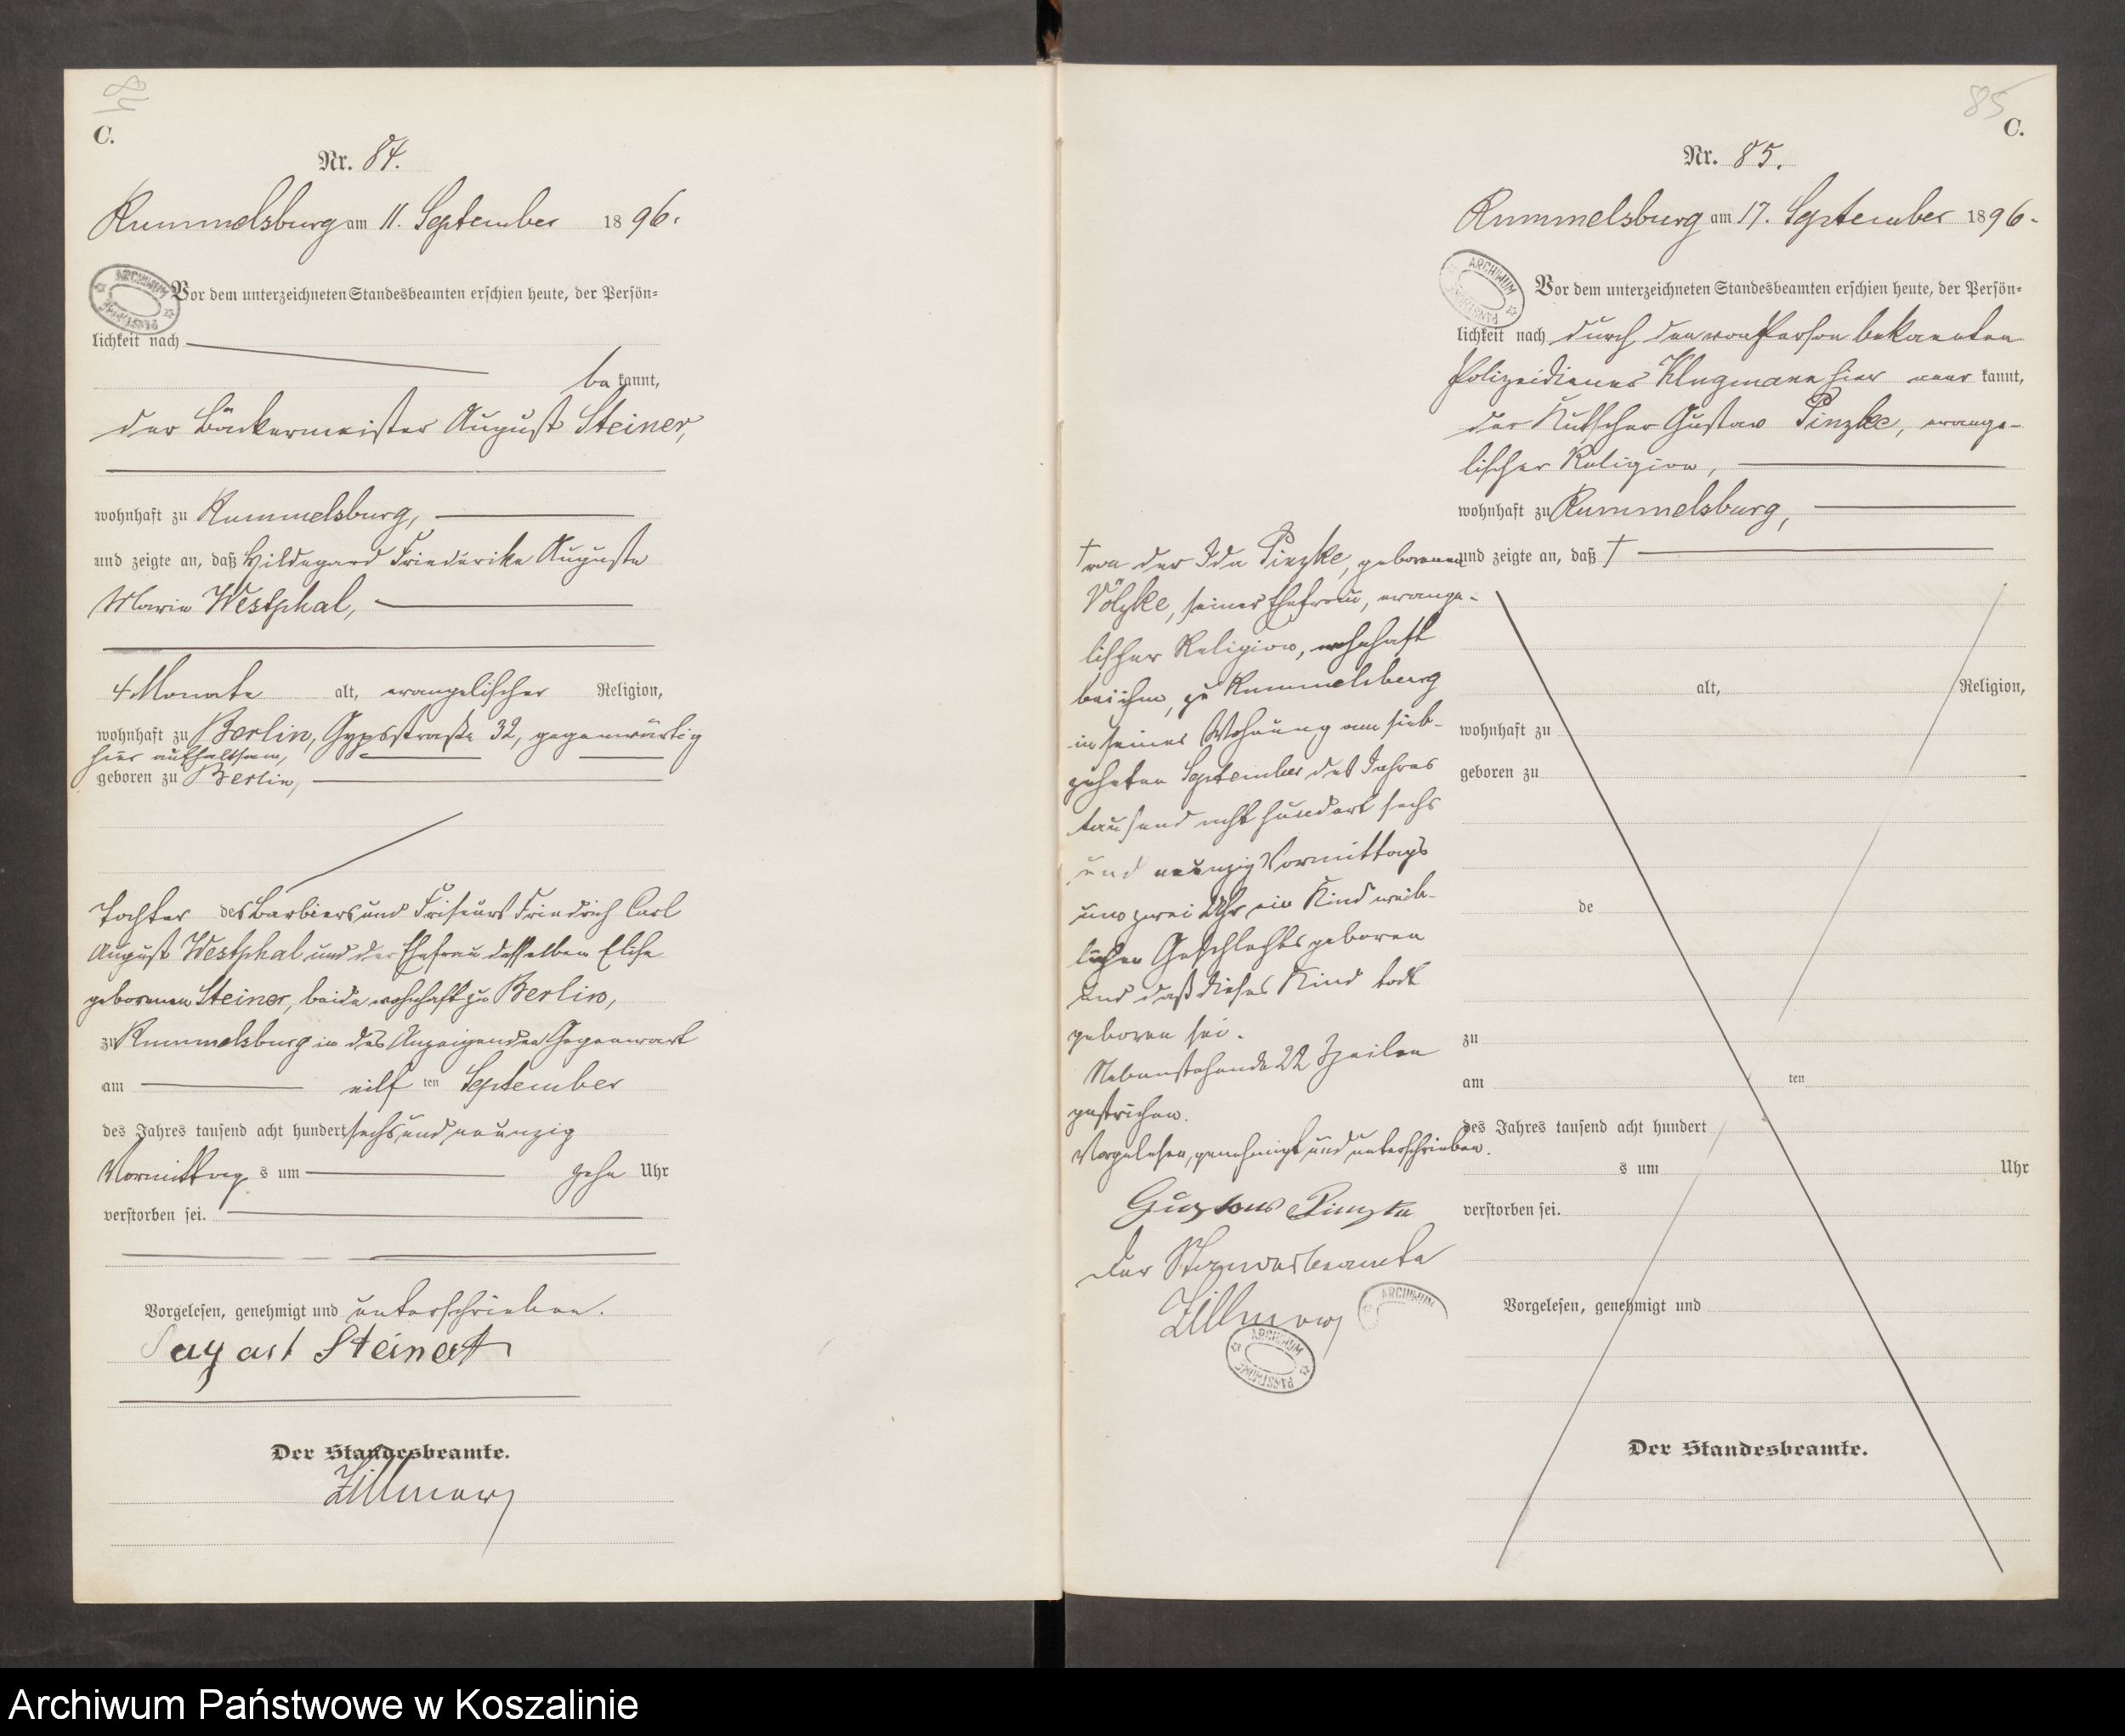 84
C.
Nr. 84.
Rummelsburg am 11. September 1896.
Vor dem unterzeichneten Standesbeamten erschien heute, der Persön=
lichkeit nach
be kannt,
der Bäckermeister August Steiner,
wohnhaft zu Rummelsburg,
und zeigte an, daß Hildegard Friederike Auguste
Marie Westphal,
4 Monate alt, evangelischer Religion,
wohnhaft zu Berlin, Gypsstraße 32, gegenwärtig
hier aufhaltsam,
geboren zu Berlin,
Tochter des Barbiers und Friseurs Friedrich Carl
August Westphal und der Ehefrau desselben Elise
geborenen Steiner, beide wohnhaft zu Berlin,
zu Rummelsburg in des Anzeigenden Gegenwart
am eilf ten September
des Jahres tausend acht hundert sechs und neunzig
Vormittag s um zehn Uhr
verstorben sei.
Vorgelesen, genehmigt und unterschrieben.
August Steinert
Der Standesbeamte.
Zillmow
85
C.
Nr. 85.
Rummelsburg am 17. September 1896.
Vor dem unterzeichneten Standesbeamten erschien heute, der Persön=
lichkeit nach durch den von Person bekannten
Polizeidiener Klugmann hier aner kannt,
der Kutscher Gustav Pinzke, evange-
lischer Religion,
wohnhaft zu Rummelsburg,
und zeigte an, daß †
† von der Ida Pinzke, geborenen
Völzke, seiner Ehefrau, evange-
lischer Religion, wohnhaft
bei ihm, zu Rummelsburg
in seiner Wohnung am sieb-
zehnten September des Jahres
tausend acht hundert sechs
und neunzig Vormittags
um zwei Uhr ein Kind weib-
lichen Geschlechts geboren
und daß dieses Kind todt
geboren sei.
Nebenstehende 22 Zeilen
gestrichen.
Vorgelesen, genehmigt und unterschrieben.
Gustav Pinzke
Der Standesbeamte
Zillmow
alt, Religion,
wohnhaft zu
geboren zu
de
zu
am ten
des Jahres tausend acht hundert
s um Uhr
verstorben sei.
Vorgelesen, genehmigt und
Der Standesbeamte.
ARCHIWUM PAŃSTWOWE
ARCHIWUM PAŃSTWOWE
ARCHIWUM
ARCHIWUM PAŃSTWOWE
Archiwum Państwowe w Koszalinie